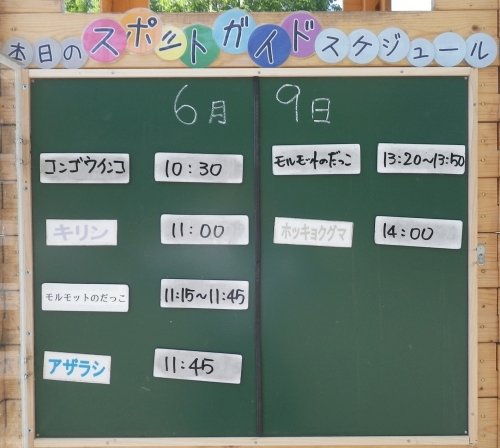 本日のスポットガイドスケジュール
6月 9日
コンゴウインコ 10:30
キリン 11:00
モルモットのだっこ 11:15～11:45
アザラシ 11:45
モルモットのだっこ 13:20～13:50
ホッキョクグマ 14:00